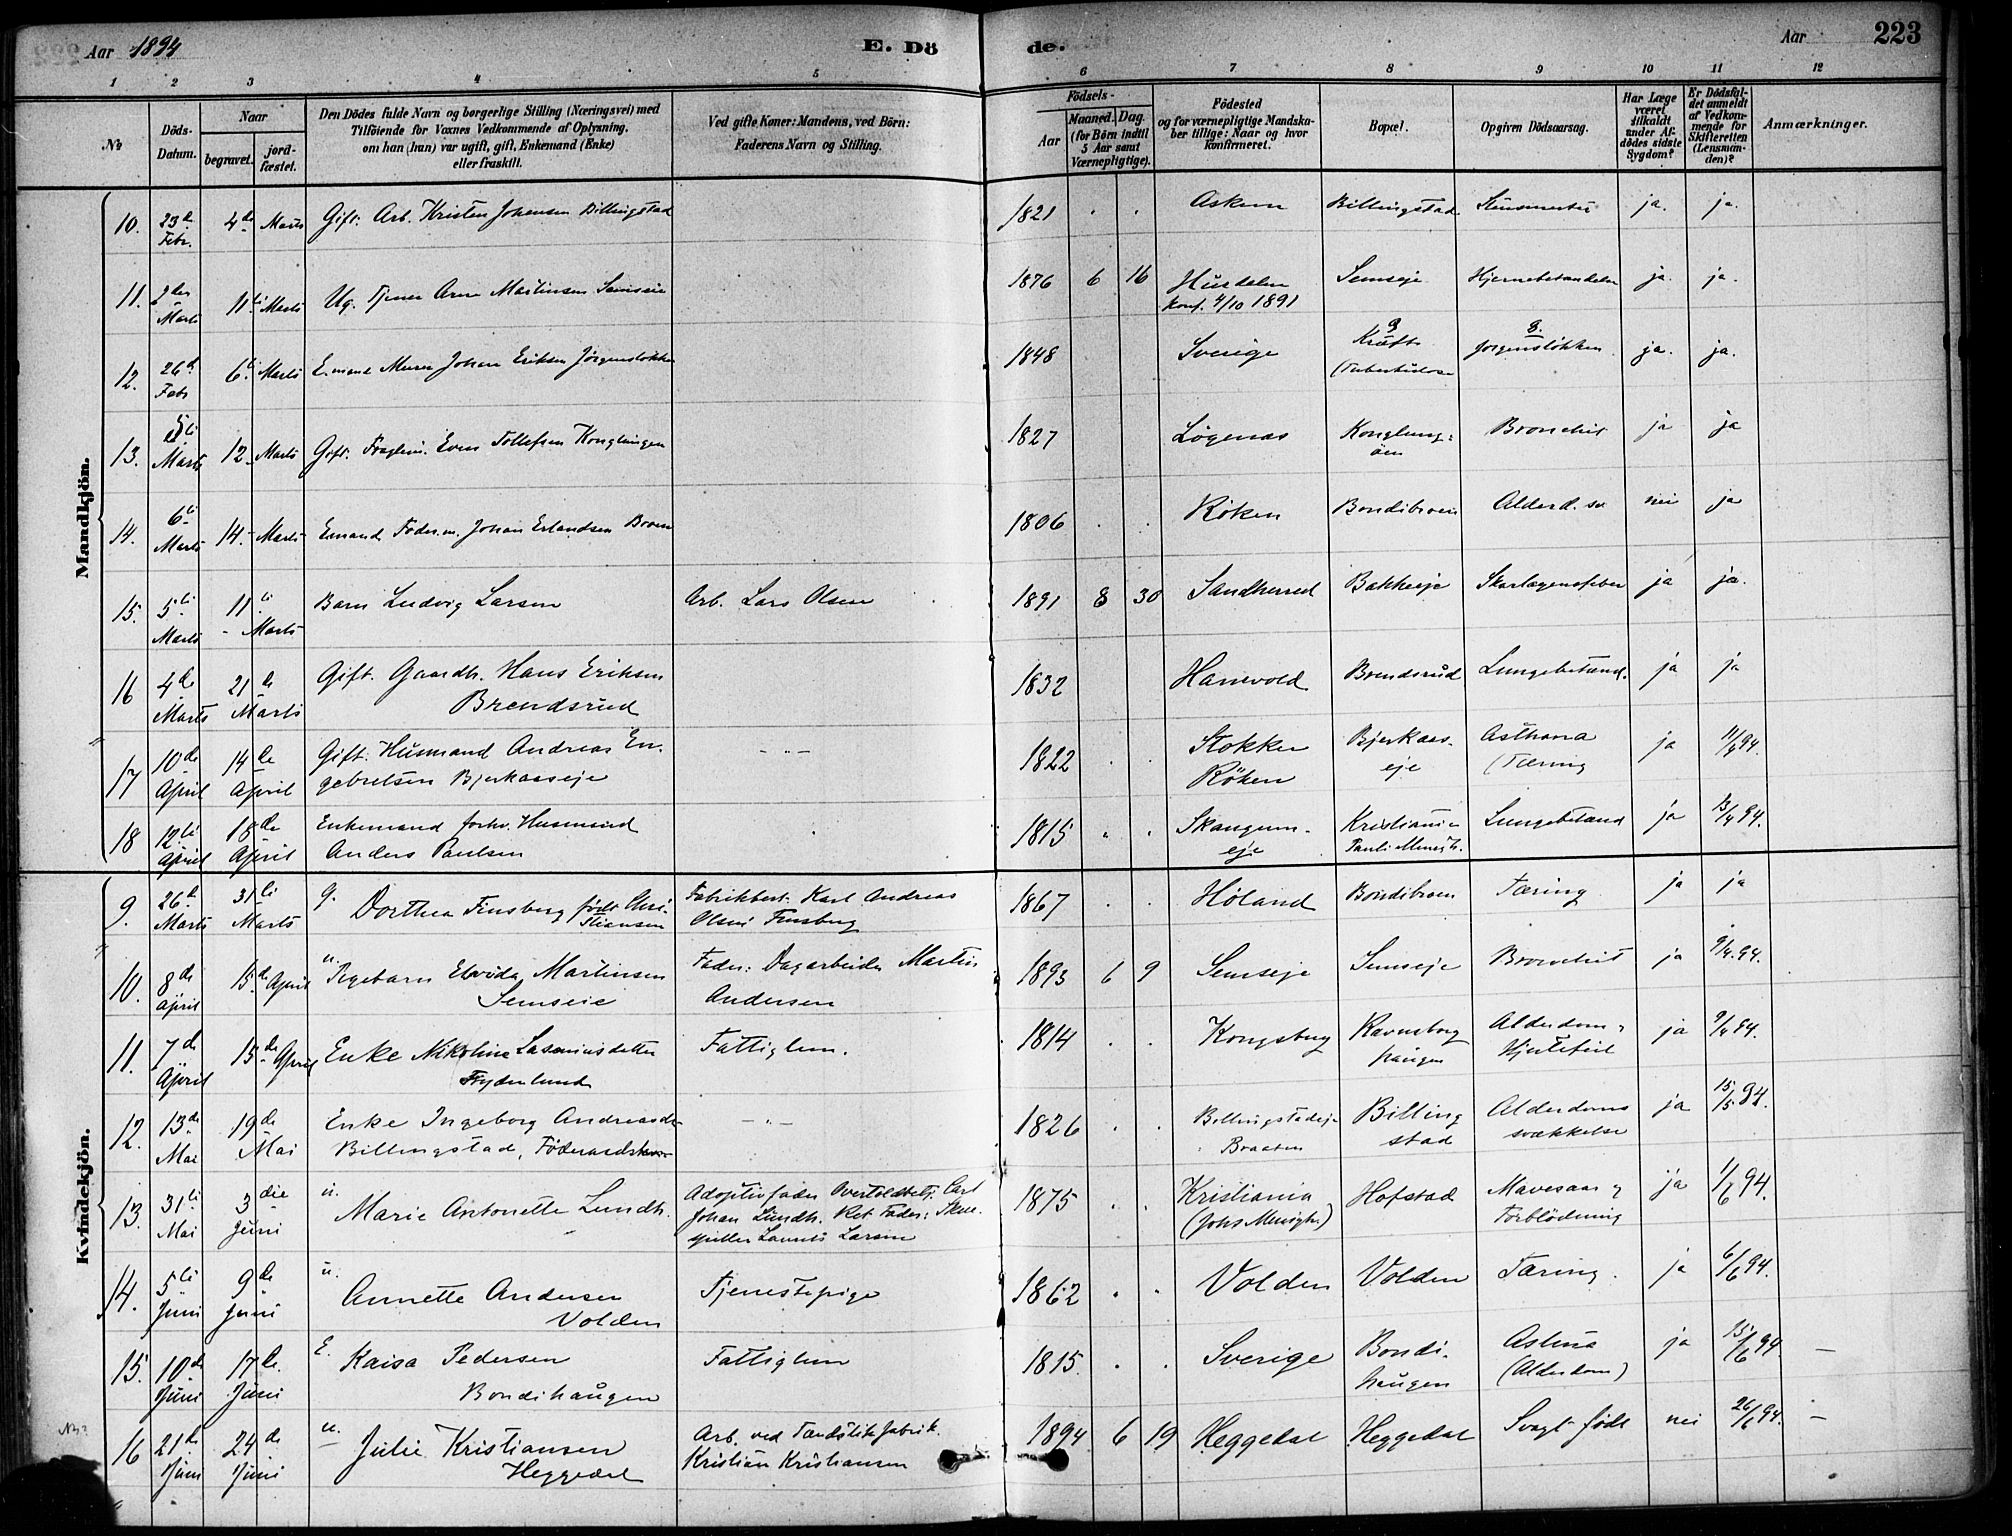 Aar 1894
E. Dö
de.
Aar
223
1 2 3 4 5 6 7 8 9 10 11 12
No
Döds-Datum.
Naar
begravet.
jord-fæstet.
Den Dödes fulde Navn og borgerlige Stilling (Næringsvei) med
Tilföiende for Voxnes Vedkommende af Oplysning,
om han (hun) var ugift, gift, Enkemand (Enke)
eller fraskilt.
Ved gifte Koner: Mandens, ved Börn:
Faderens Navn og Stilling.
Födsels-
Aar
Maaned. Dag.
(for Börn indtil
5 Aar samt
Værnepligtige).
Födested
og for værnepligtige Mandska-
ber tillige: Naar og hvor
konfirmeret.
Bopæl.
Opgiven Dödsaarsag.
Har Læge
været
tilkaldt
under Af-
dödes sidste
Sygdom?
Er Dödsfal-
det anmeldt
af Vedkom-
mende for
Skifteretten
(Lensman-
den)?
Anmærkninger.
Mandkjön.
10. 23de Febr. 4de Marts Gift. Arb. Kristen Johansen Billingstad 1821 . . Askern Billingstad ja. ja.
11. 2den Marts 11te Marts Ug. Tjener Arne Martinsen Semseie 1876 6 16 Hurdalen Semseje Hjernebetændelse ja. ja.
konf. 4/10 1891
12. 26de Febr 6te Marts E.mand Murer Johan Eriksen Jörgensløkken 1848 Sverige Kræft Jorgensløkken ja. ja.
(Tuberkulose
13. 5te Marts 12 Marts Gift. Even Tollefsen Konglungen 1827 Løgenæs Konglung- Bronchit ja ja
öen
14. 6te Marts 14 Marts Emand Føder.m. Johan Erlandsen Broen 1806 . . Röken Bondibroen Alderd. sv nei ja
15. 5te Marts 11te Marts Barn Ludvig Larsen Arb. Lars Olsen 1891 8 30 Sandherred Bakkeeje Skarlagensfeber ja ja.
16 4de Marts 21de Marts Gift. Gaardb. Hans Eriksen 1832 Hanevold Brendsrud Lungebetænd. ja ja
Brendsrud
17 10de April 14de April Gift. Husmand Andreas En- — " — 1822 . . Stokker Bjerkaas- Asthma ja 11/4 94.
gebretsen Bjerkaaseje Röken eje (Tæring
18 12te April 18de April Enkemand forhv. Husmand 1815 . . Skaugum- Kristiania Lungebetænd ja 13/4 94.
Anders Paulsen eje Pauli Menigh.
Kvindekjön.
9. 26de Marts 31te Marts g. Dorthea Finsberg født Chri- Fabrikbest. Karl Andreas 1867 . . Høland Bondibroen Tæring ja ja
stiansen Olsen Finsberg
10. 8de April 15de April u. Pigebarn Elvida Martinsen Fader: Dagarbeider Martin 1893 6 9 Semseje Semseje Bronchit ja 9/4.94.
Semseie Andersen
11. 7de April 15de April Enke Nikoline Lasariusdatter Fattiglem. 1814 . . Kongsberg Ravnsborg Alderdom, ja 9/4 94.
Frydenlund haugen Hjertefeil
12. 13de Mai 19de Mai Enke Ingeborg Andreasdr — " — 1826 . . Billingstadeje Billing Alderdoms ja 15/5 94.
Billingstad, Föderaadskone Braaten stad svækkelse
13. 31te Mai 3die Juni u. Marie Antonette Lundh. Adoptivfader Overtoldbetj. Carl 1875 . . Kristiania Hofstad Mavesaar og ja 1/6 94.
Johan Lundh. Ret Fader: Skue- (Johs Menighed) Forblödning
spiller Laurits Larsen
14. 5te Juni 9de Juni u. Annette Andersen Tjenestepige 1862 . . Volden Volden Tæring. ja 6/6 94.
Volden
15. 10de Juni 17de Juni E. Kaisa Pedersen Fattiglem 1815. . . Sverige Bondi- Astma ja 15/6 94. —
Bondihaugen haugen (Alderdom)
16 21de Juni 24de Juni u. Julie Kristiansen Arb. ved Tændstikfabrik. 1894 6 19 Heggedal Heggedal Svagt född nei 26/6 94. —
Heggedal Kristian Kristiansen